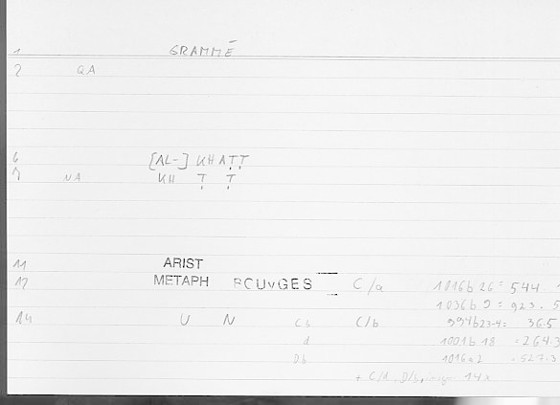 1 GRAMMĒ
2 QA
6 [AL-] KHAṬṬ
7 NA KH Ṭ Ṭ
11 ARIST
12 METAPH BOUYGES C/a 1016b 26 = 544.
1036b 9 = 923.5
14 U N Cb C/b 994b23-4 = 36.5
d 1001b 18 = 264.3
Db 1016a2 = 527.3
+ C/d, D/b, 14x